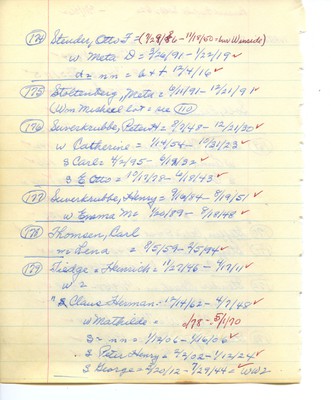 (174) Studer, Otto F = (9/29/86 - 11/18/60 = bur Winside) 
w. Meta D = 3/26/91 - 1/22/19 ✓
d = nn = b + t 12/4/16 ✓
(175) Stoltenberg, Meta = 9/11/91 - 12/21/91 ✓
(Wm Mischeel Lot = see (110)
(176) Suverkrubbe, Peter H = 8/7/48 - 12/21/20 ✓
w Catherine = 1/19/54 - 10/21/23 ✓
s Carl = 4/2/95 -
s E Otto = 10/17/78 - 4/18/43 ✓
(177) Suverkrubbe, Henry = 9/16/84 - 8/19/51 ✓
w Emma M = 1/20/89 - 8/18/48 ✓
(178) Thomsen, Carl
Lena = 9/5/59 - 2/5/94 ✓
(179) Tiedge = Heinrich = 11/27/46 - 4/17/11 ✓
w =
" s Claus Herman = 10/14/62 - 4/7/48 ✓
w Mathilde = /78 - 5/1/70
s = nn = 1/12/06 - 1/16/06 ✓
s Peter Henry = 2/2/02 - 1/12/24 ✓
s George = 2/20/12 - 7/29/44 = ✓ WW2